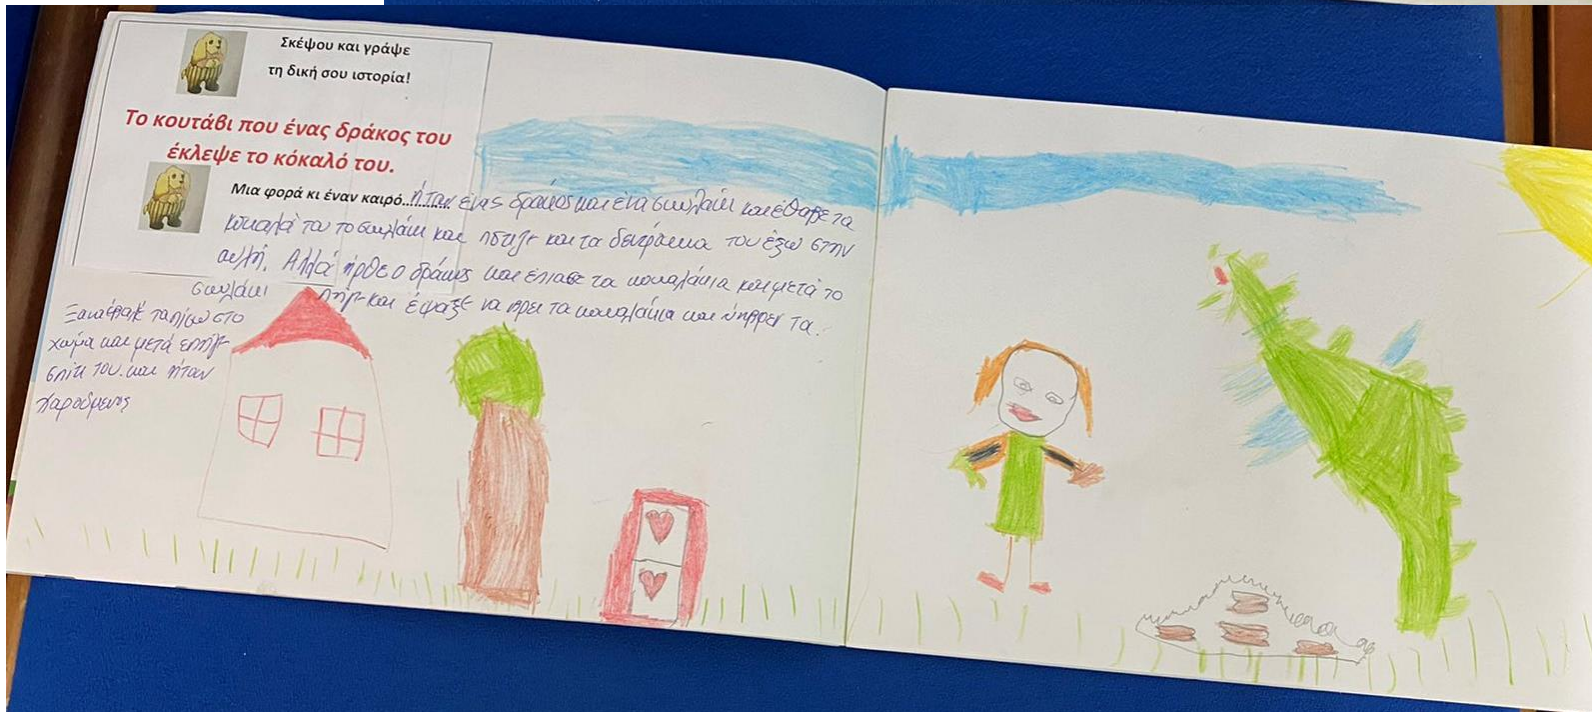 Σκέψου και γράψε
τη δική σου ιστορία!
Το κουτάβι που ένας δράκος του
έκλεψε το κόκαλό του.
Μια φορά κι έναν καιρό......... ήταν ένας δράκος και ένα σκυλάκι και έθαβε τα
κόκαλά του το σκυλάκι και και τα δεντράκια του έξω στην
αυλή. Αλλά ήρθε ο δράκος και έπιασε τα κοκαλάκια και μετά το
σκυλάκι πήγε και έψαξε να βρει τα κοκαλάκια και
τα πίσω στο
χώμα και μετά επήγε
σπίτι του. και ήταν
χαρούμενος